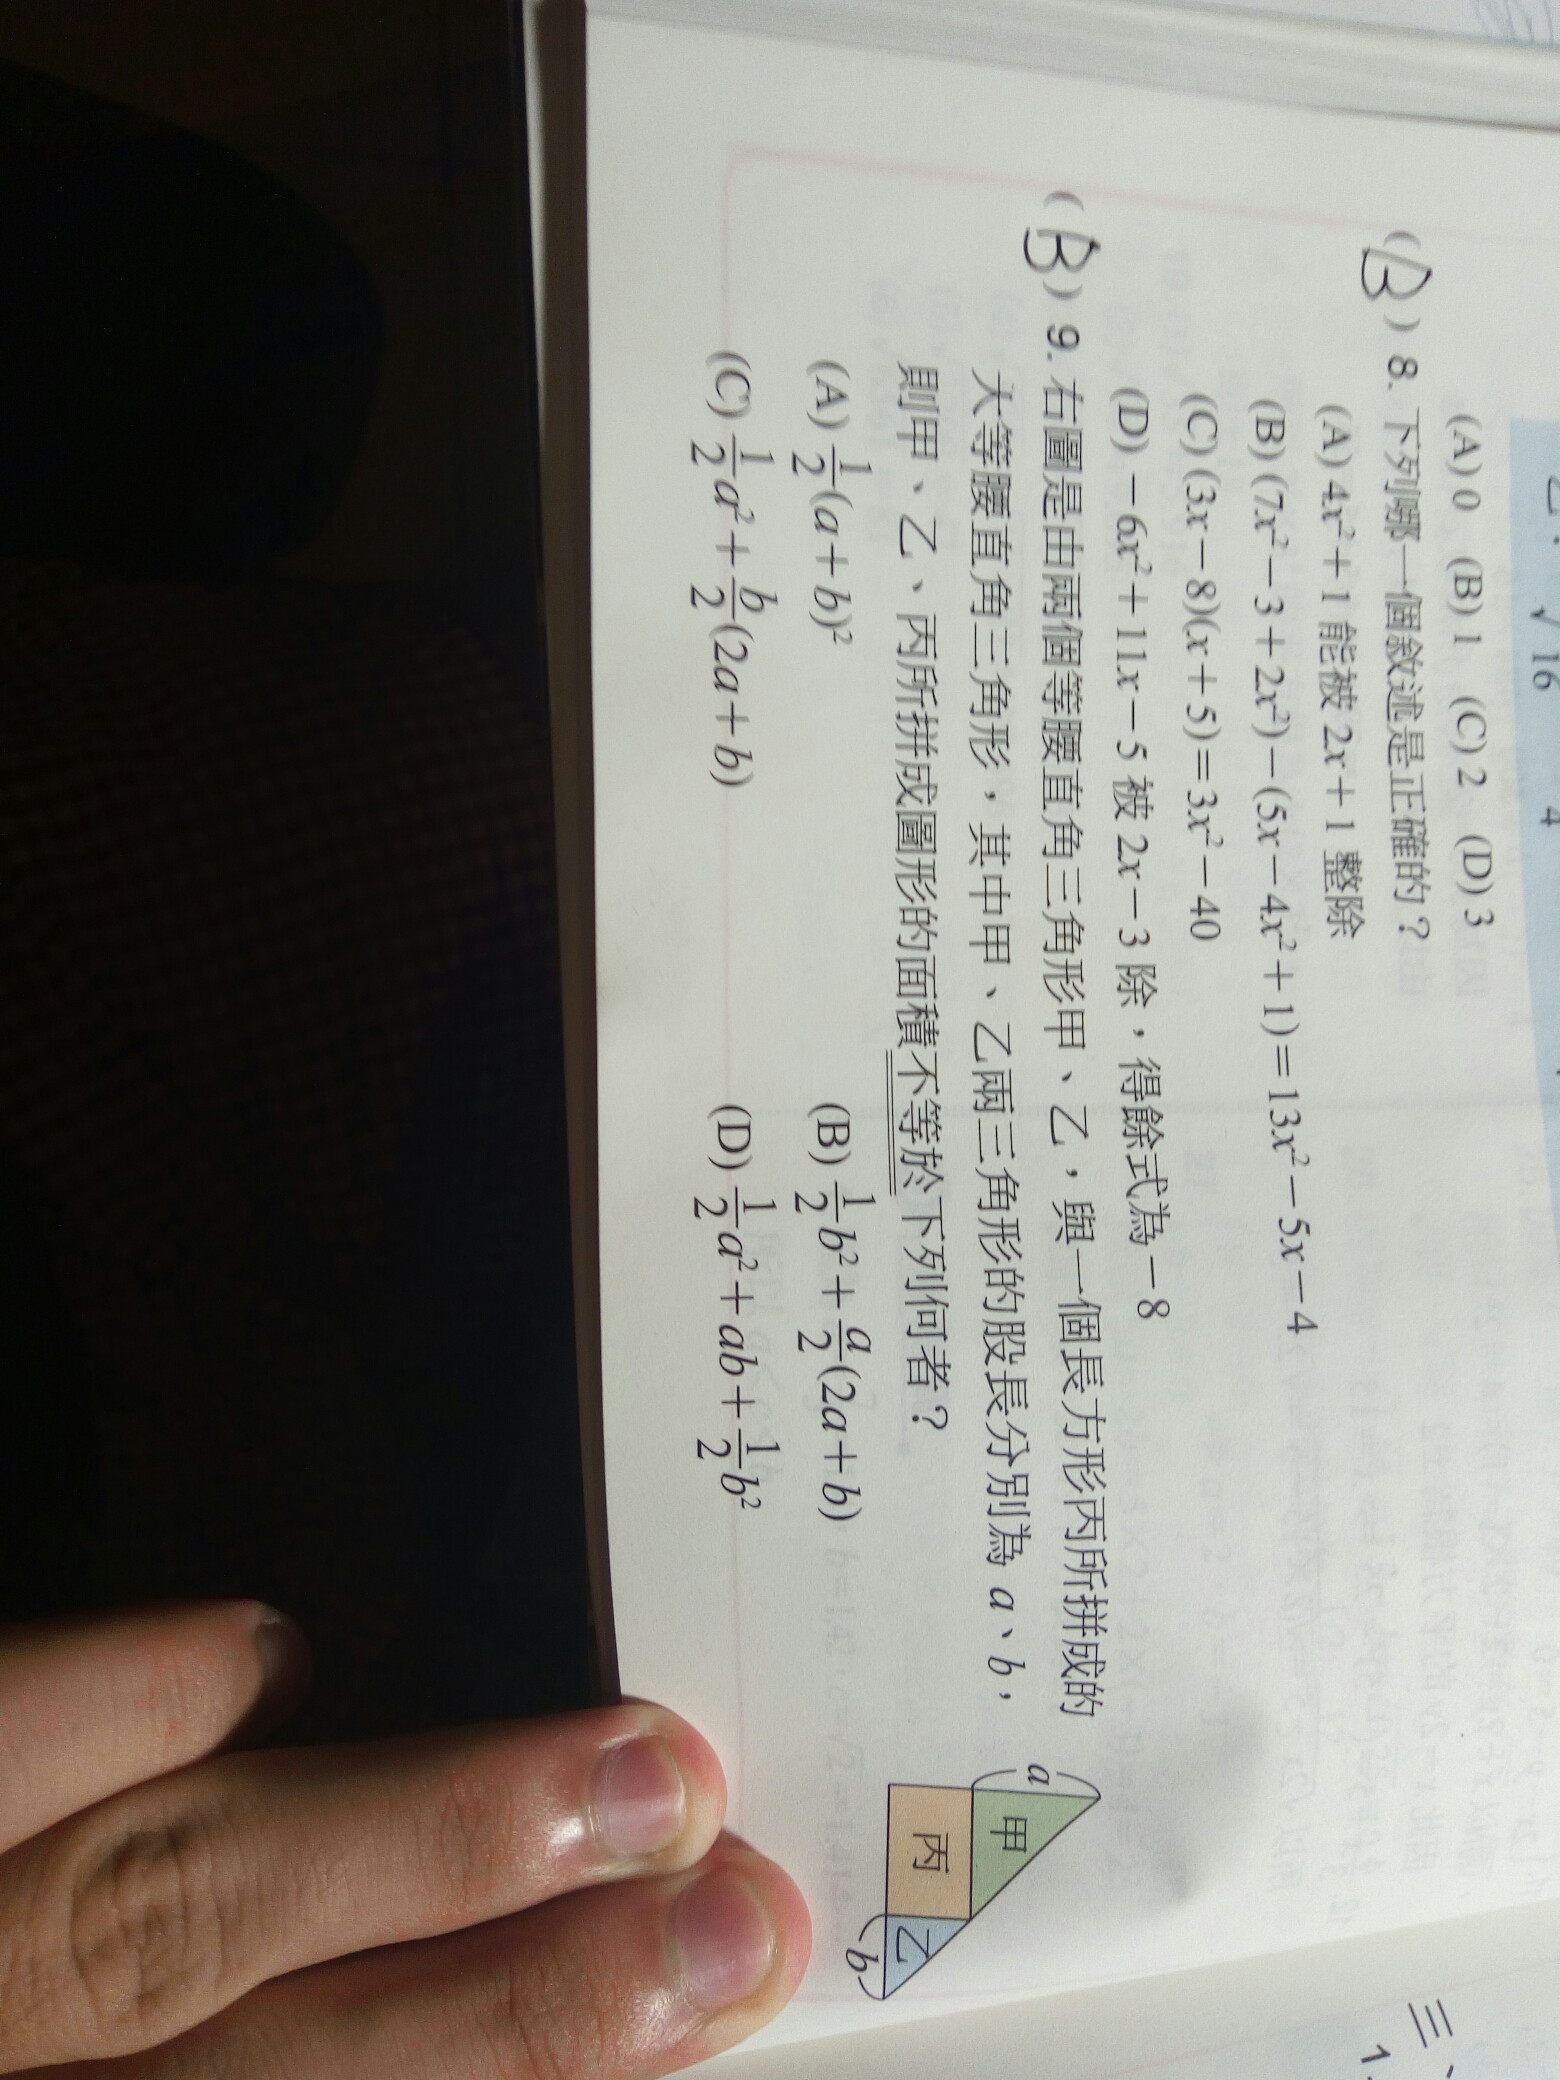 √16 4
(A) 0 (B) 1 (C) 2 (D) 3
(B) 8. 下列哪一個敘述是正確的？
(A) 4x²+1 能被 2x+1 整除
(B) (7x²-3+2x²)-(5x-4x²+1)=13x²-5x-4
(C) (3x-8)(x+5)=3x²-40
(D) -6x²+11x-5 被 2x-3 除，得餘式為-8
(B) 9. 右圖是由兩個等腰直角三角形甲、乙，與一個長方形丙所拼成的
大等腰直角三角形，其中甲、乙兩三角形的股長分別為 a、b，
則甲、乙、丙所拼成圖形的面積不等於下列何者？
(A) 1/2(a+b)² (B) 1/2b²+a/2(2a+b)
(C) 1/2a²+b/2(2a+b) (D) 1/2a²+ab+1/2b²
a
甲
丙
乙
b
三、
1.